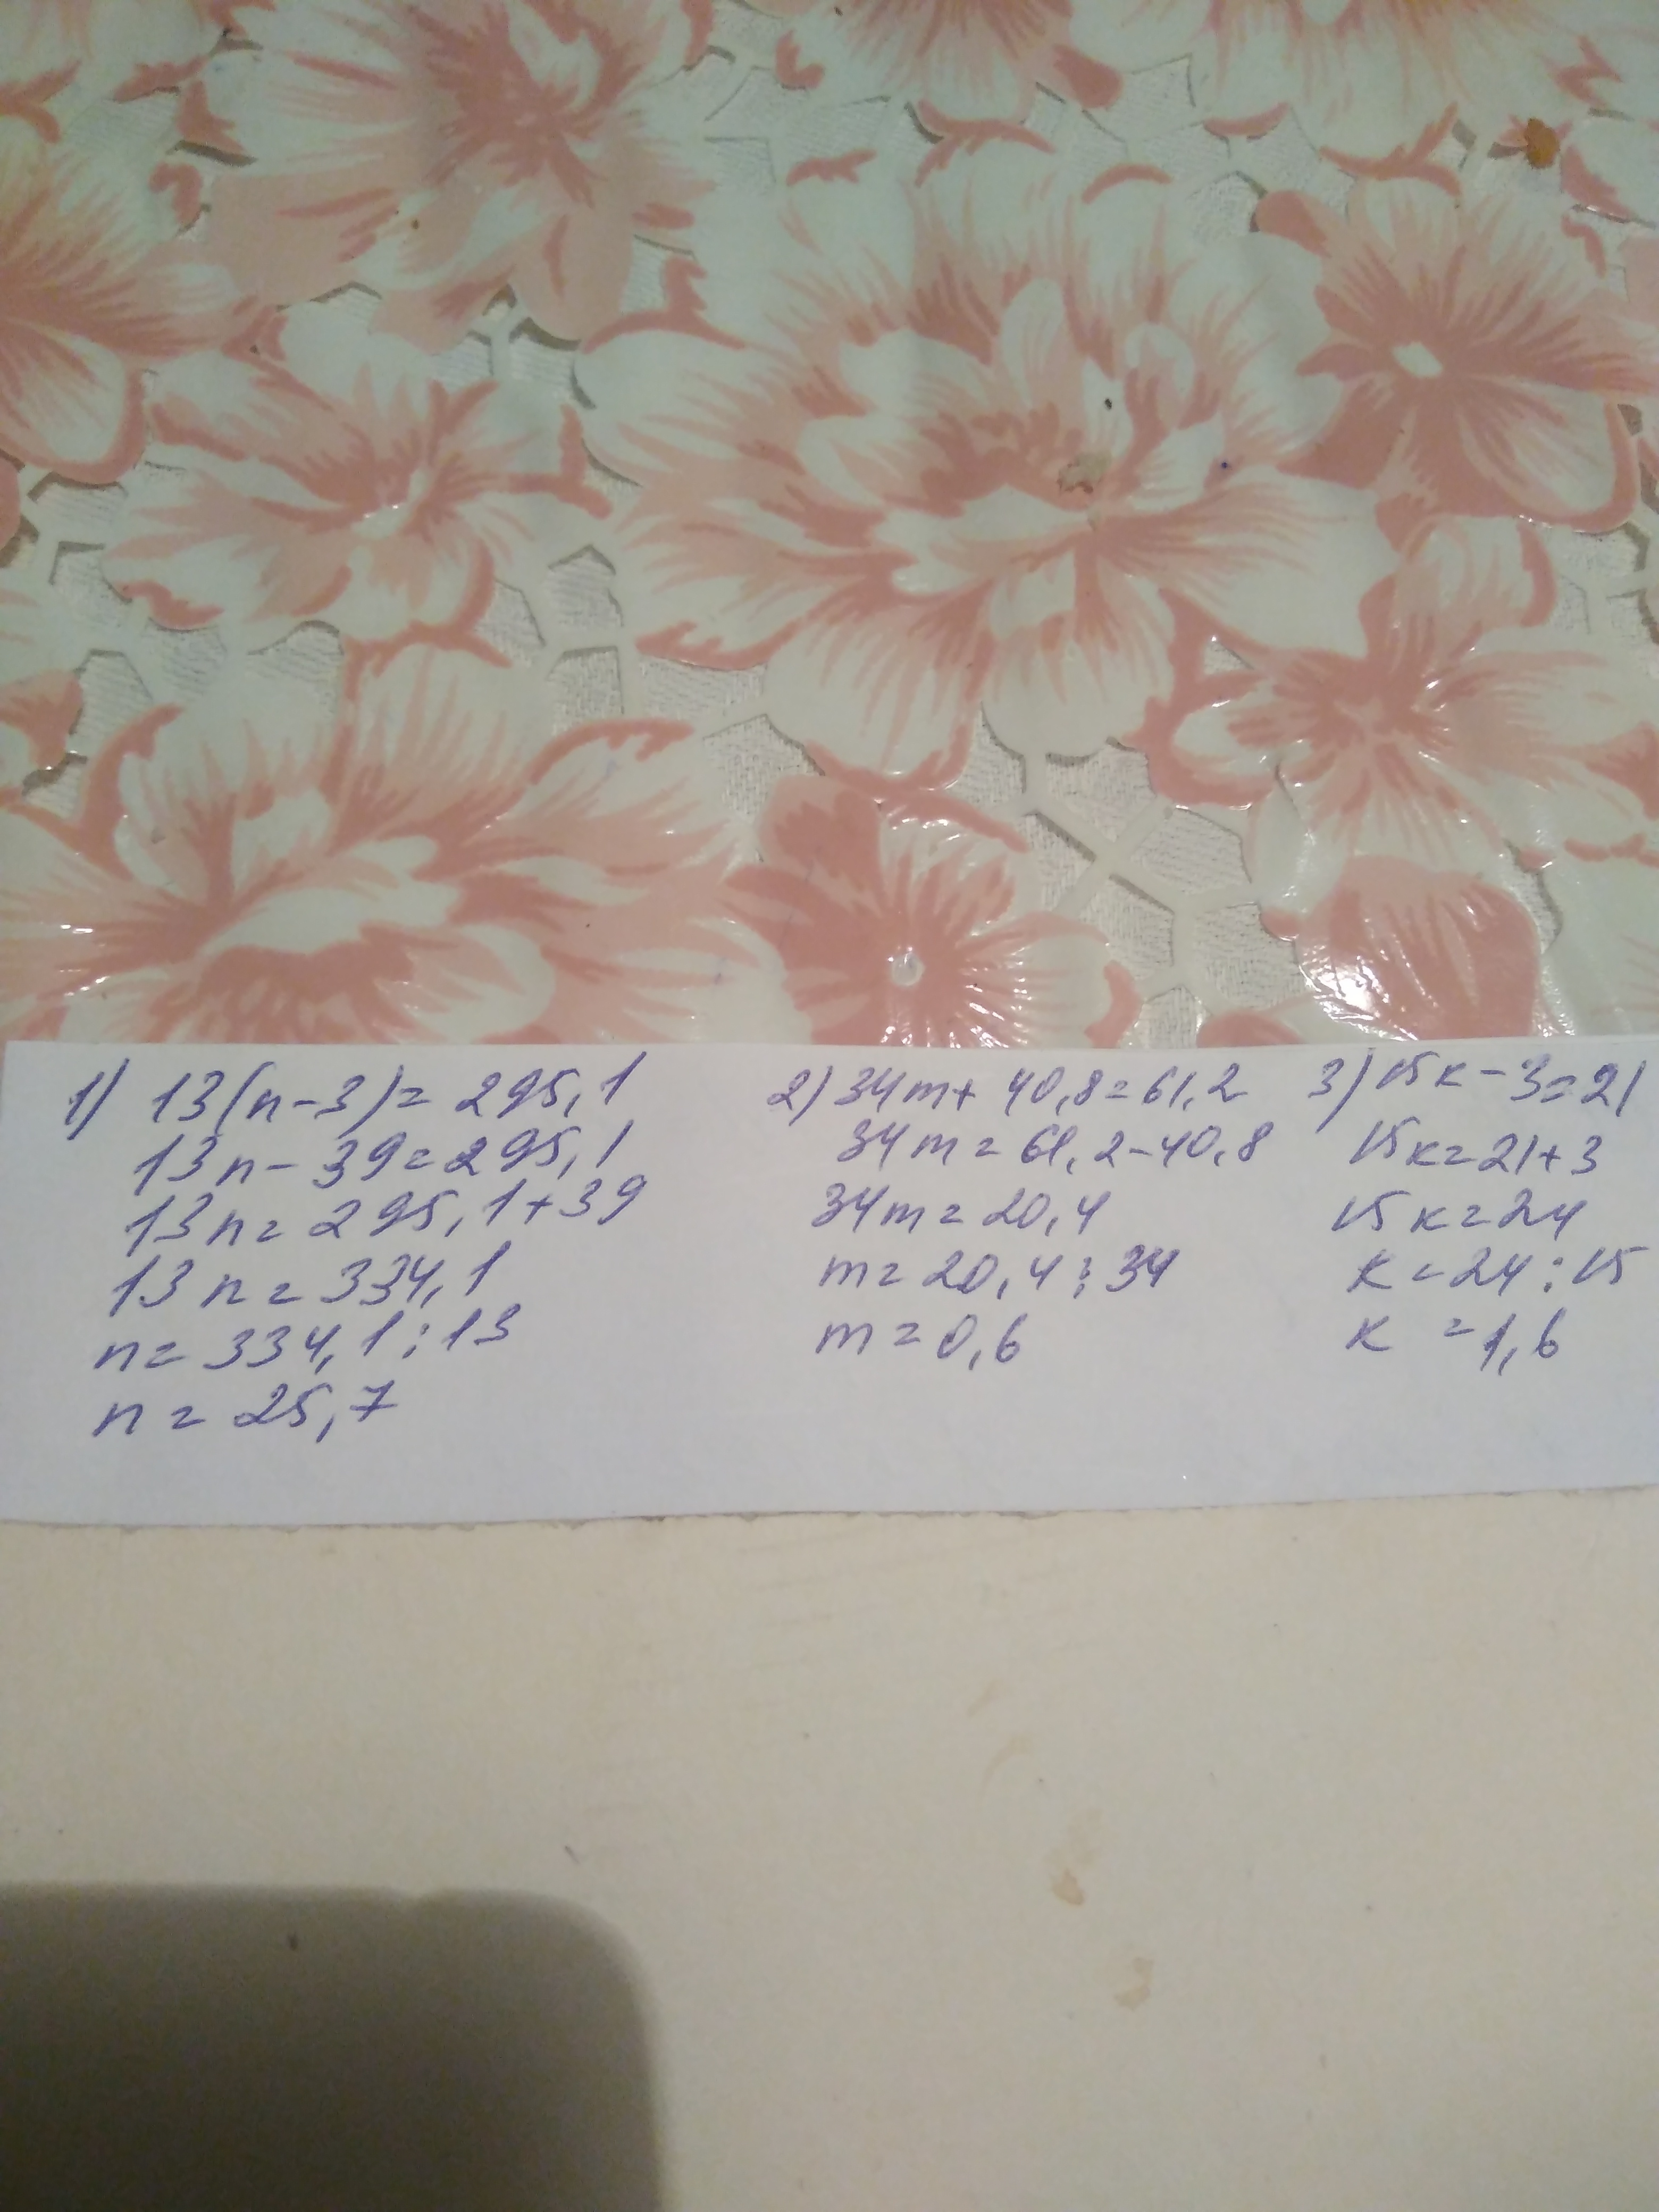 1) 13(n-3)=295,1
13n-39=295,1
13n=295,1+39
13n=334,1
n=334,1:13
n=25,7
2) 34m+40,8=61,2
34m=61,2-40,8
34m=20,4
m=20,4:34
m=0,6
3) 15к-3=21
15к=21+3
15к=24
к=24:15
к=1,6